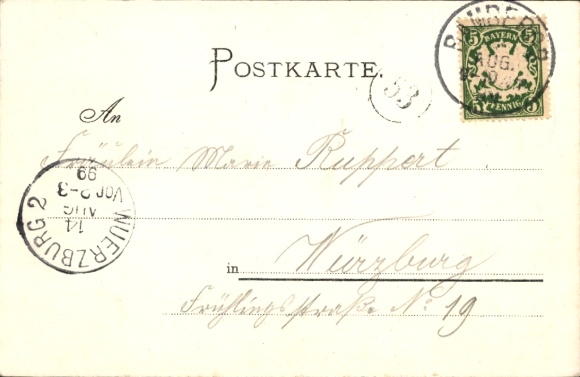 POSTKARTE.
BAMBERG
AUG.
5 BAYERN 5
5 PFENNIG 5
53
An
Fräulein Marie Ruppert
WUERZBURG 2
14
AUG
Vor 2-3
99
in Würzburg
Frühlingsstraße No 19